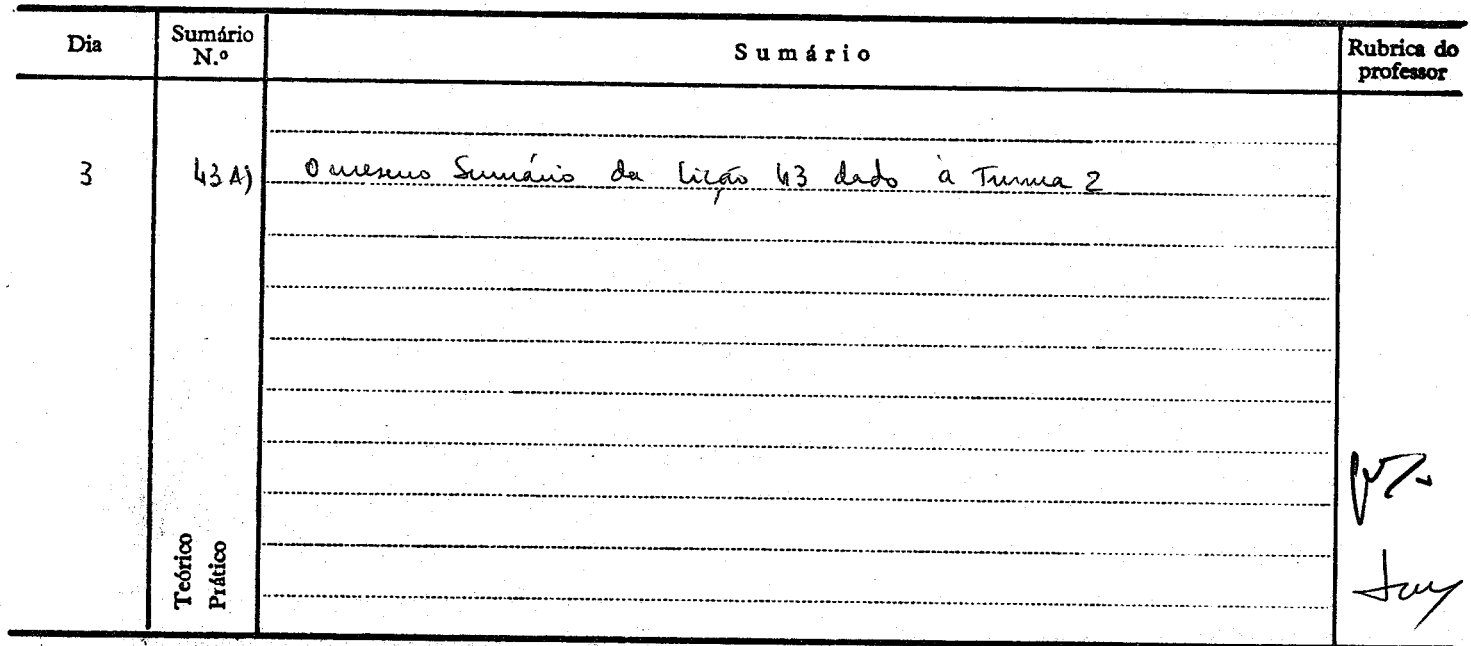 Dia
Sumário N.º
Sumário
Rubrica do professor
3
43 A)
O mesmo Sumário da lição 43 dado à Turma 2
Teórico
Prático